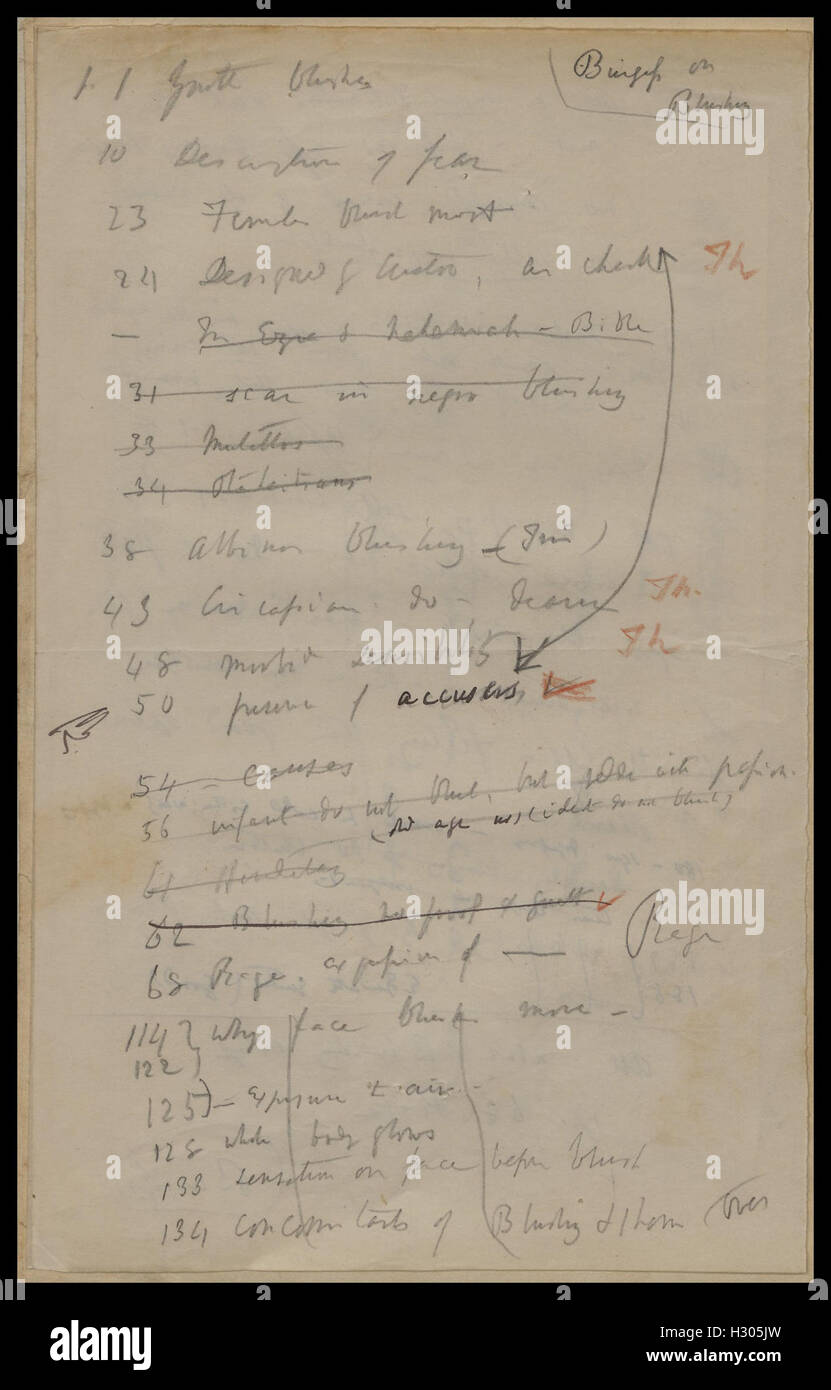 Burgess on
Blushing
p. 1 Youth blushes
10 Description of fear
23 Females blush most
24 Designed by Creator, as check Th
— In Ezra & Nehemiah - Bible
31 scar in negro blushing
33 Mulattos
34 Otaheitians
38 Albinos blushing -
43 Circassians do - Th.
48 morbid sensibility Th
50 presence of accusers
54 - Causes
56 infant do not blush, but redden with passion.
(old age not) (idiots do not blush)
61 Hereditary
62 Blushing no proof of guilt
68 Rage. expression of — Rage
114 } why face blushes more -
122 }
125 } - exposure to air -
128 whole body glows
133 sensation on face before blush
134 concomitants of Blushing & Shame (over
a alamy
alamy
Image ID: H305JW
www.alamy.com